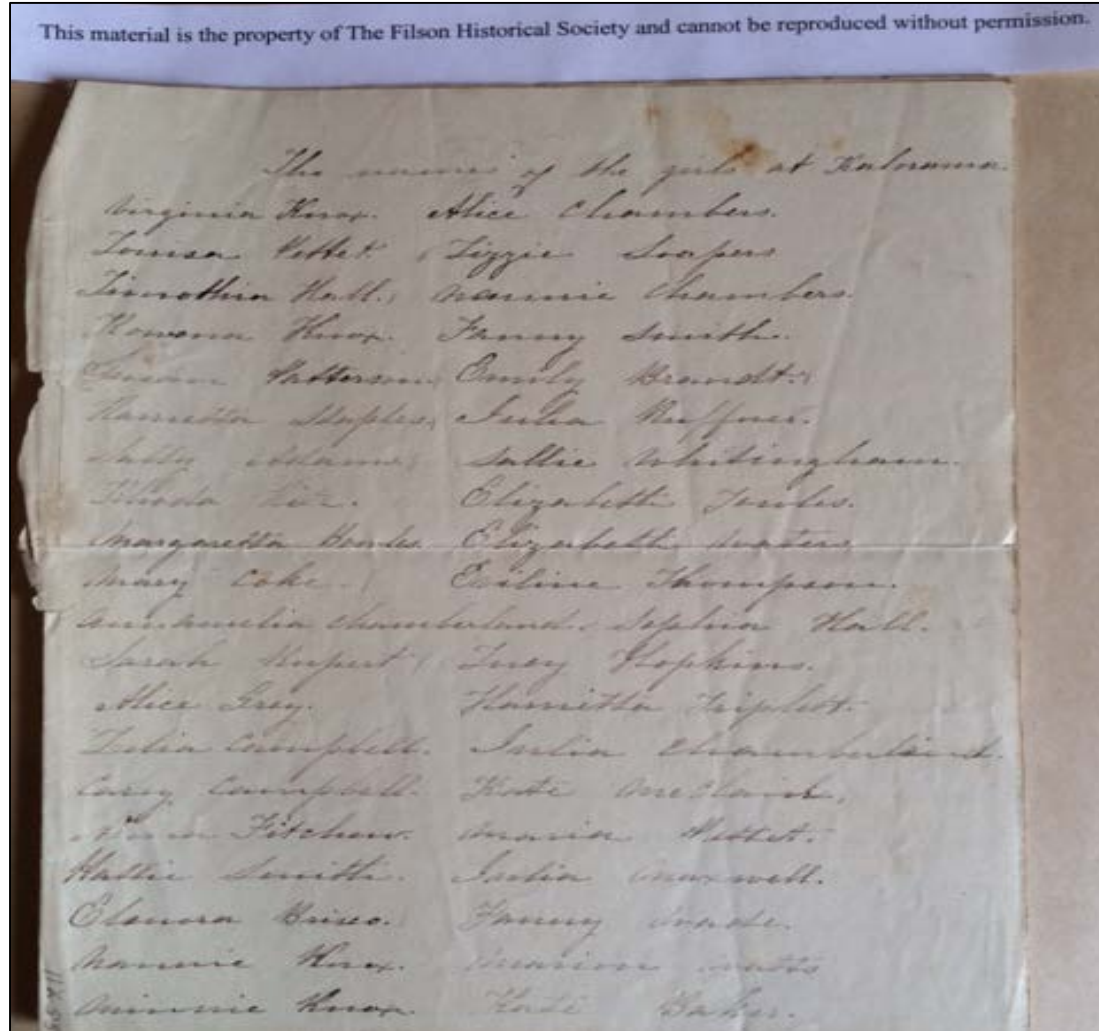 This material is the property of The Filson Historical Society and cannot be reproduced without permission.
The names of the girls at Kalorama.
Virginia Knox. Alice Chambers.
Louisa Lizzie Soapers
Timothia Hall. Nannie Chambers.
Rowena Knox. Fanny Smith.
Susan Patterson. Emily Brandt.
Hamietta Staples, Julia Ruffner.
Sally Adams, Sallie Whitingham.
Rhoda Elizabeth
Margaretta Bowles. Elizabeth Waters
Mary Coke. Eveline Thompson.
Chamberland. Sophia Hall.
Sarah Rupert, Lucy Hopkins.
Alice Grey. Hamietta Triplett.
Campbell. Julia Chamberland.
Carey Campbell. Kate
Fitchew. Maria
Hattie Smith. Julia Maxwell.
Elanora Brisco. Fanny Wade.
Nannie Knox. Marion Watts
Minnie Knox Kate Baker.